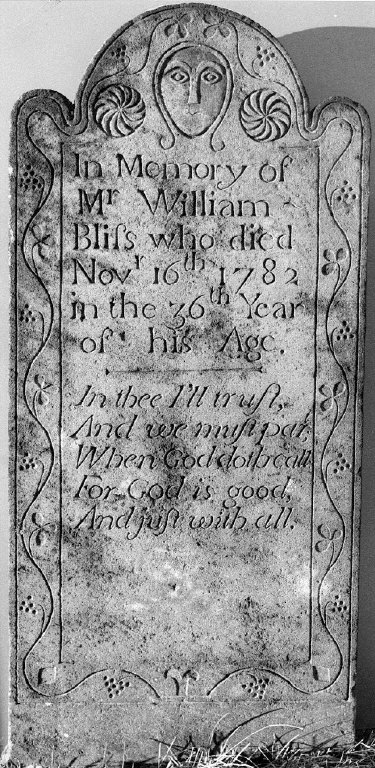 In Memory of
Mʳ William
Bliſs who died
Novʳ 16ᵗʰ 1782
in the 36ᵗʰ Year
of his Age.
In thee I'll truſt,
And we muſt pat,
When God doth call
For God is good,
And juſt with all.